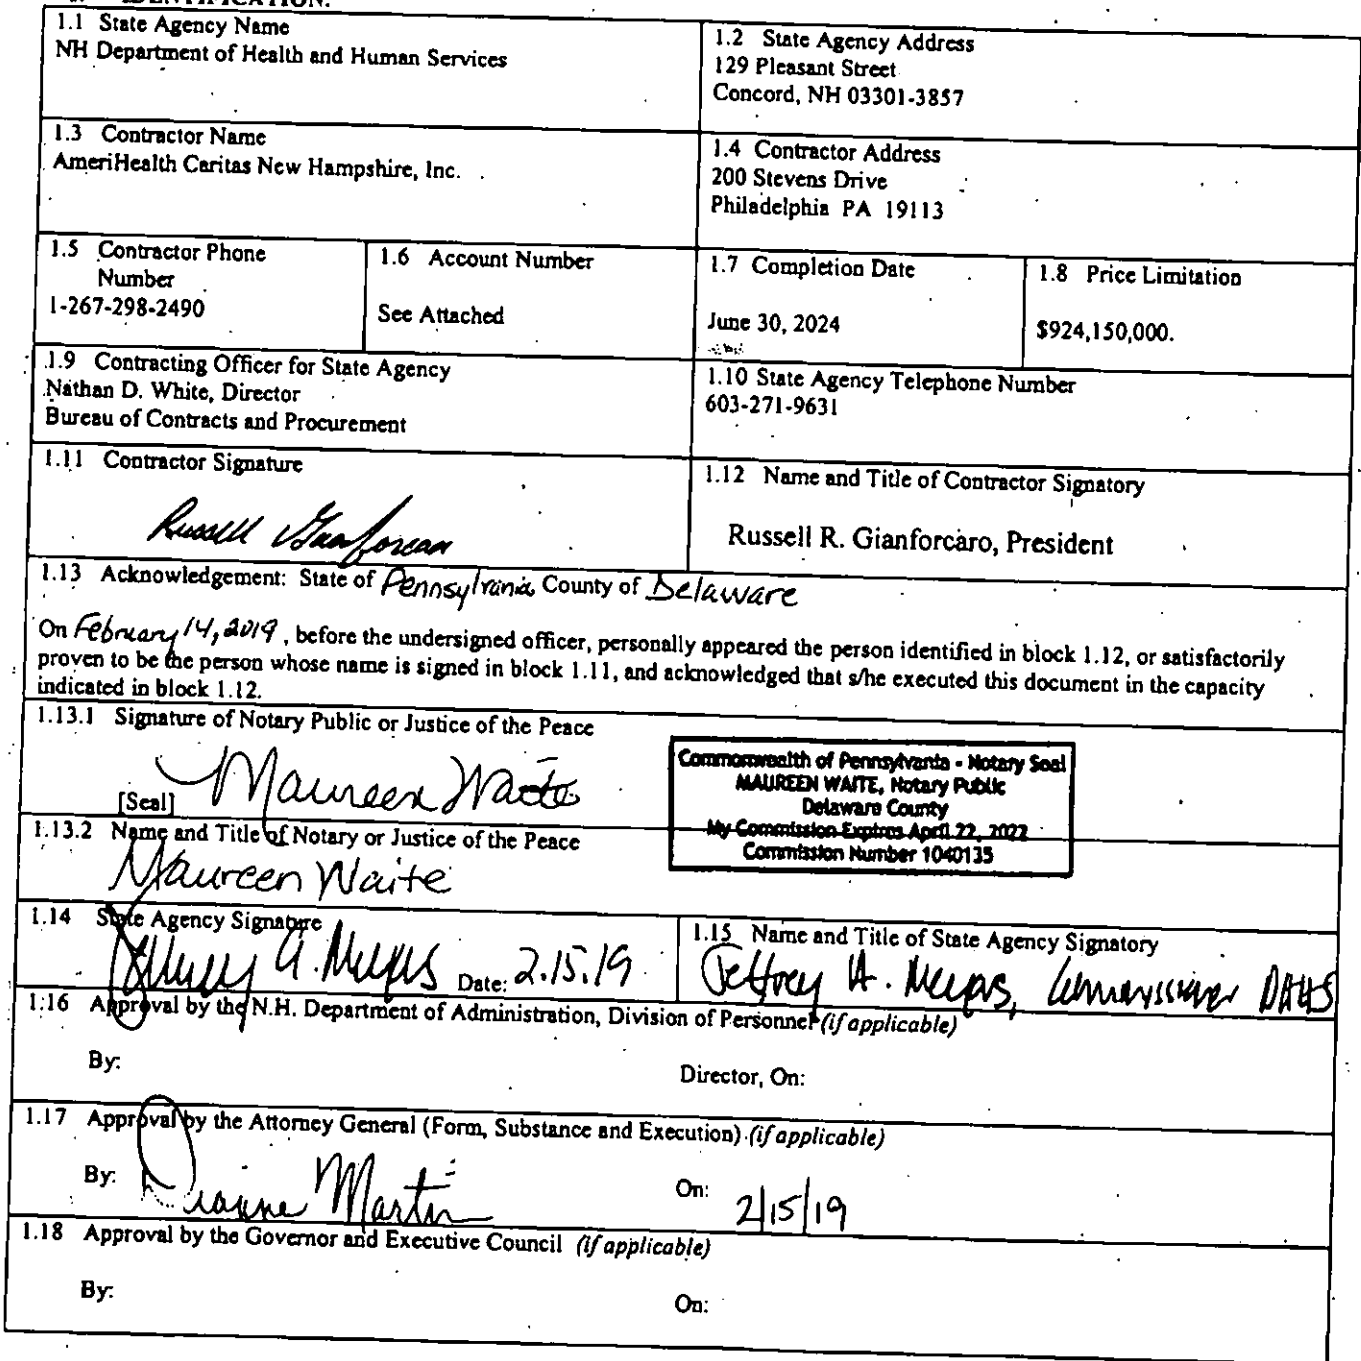 IDENTIFICATION.
1.1 State Agency Name
NH Department of Health and Human Services
1.2 State Agency Address
129 Pleasant Street
Concord, NH 03301-3857
1.3 Contractor Name
AmeriHealth Caritas New Hampshire, Inc.
1.4 Contractor Address
200 Stevens Drive
Philadelphia PA 19113
1.5 Contractor Phone
Number
1-267-298-2490
1.6 Account Number
See Attached
1.7 Completion Date
June 30, 2024
1.8 Price Limitation
$924,150,000.
1.9 Contracting Officer for State Agency
Nathan D. White, Director
Bureau of Contracts and Procurement
1.10 State Agency Telephone Number
603-271-9631
1.11 Contractor Signature
Russell Gianforcaro
1.12 Name and Title of Contractor Signatory
Russell R. Gianforcaro, President
1.13 Acknowledgement: State of Pennsylvania, County of Delaware
On February 14, 2019, before the undersigned officer, personally appeared the person identified in block 1.12, or satisfactorily
proven to be the person whose name is signed in block 1.11, and acknowledged that s/he executed this document in the capacity
indicated in block 1.12.
1.13.1 Signature of Notary Public or Justice of the Peace
Maureen Waite
[Seal]
Commonwealth of Pennsylvania - Notary Seal
MAUREEN WAITE, Notary Public
Delaware County
My Commission Expires April 22, 2022
Commission Number 1040135
1.13.2 Name and Title of Notary or Justice of the Peace
Maureen Waite
1.14 State Agency Signature
Jeffrey A. Meyers Date: 2.15.19
1.15 Name and Title of State Agency Signatory
Jeffrey A. Meyers, Commissioner DHHS
1.16 Approval by the N.H. Department of Administration, Division of Personnel (if applicable)
By:
Director, On:
1.17 Approval by the Attorney General (Form, Substance and Execution) (if applicable)
By: Dianne Martin
On: 2/15/19
1.18 Approval by the Governor and Executive Council (if applicable)
By:
On: